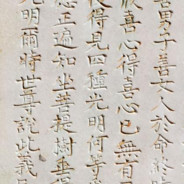 男子善女人於命終
喜心得喜心已無有
得見四種光明何等
正遍知坐菩提樹垂
明爾時世尊說此義